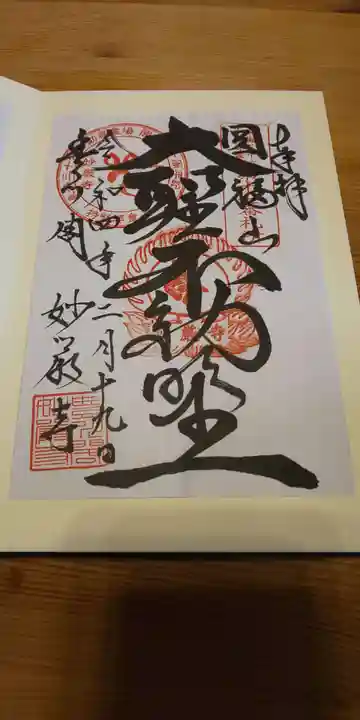 奉拝
圓福山
大聖不動明王
令和四年二月十九日
豊川閣
妙厳寺